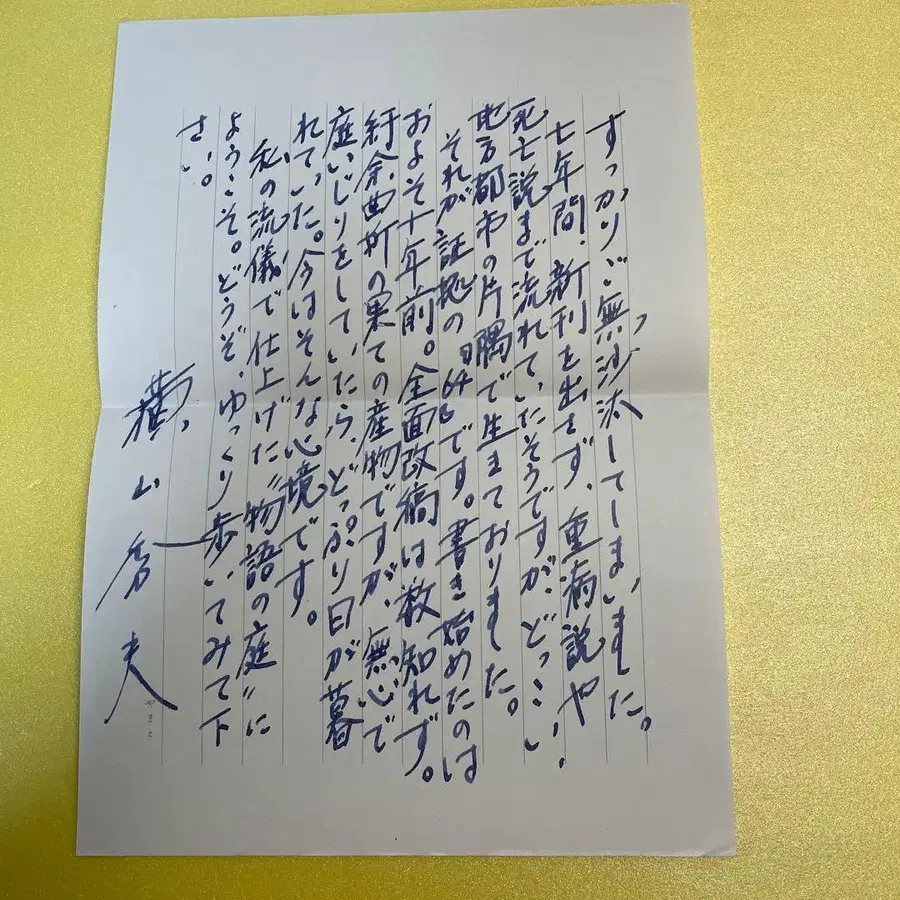 すっかりご無沙汰してしまいました。
七年間、新刊を出さず、重病説や
死亡説まで流れていたそうですが、どっこい、
地方都市の片隅で生きておりました。
それが証拠の『64』です。書き始めたのは
およそ十年前。全面改稿は数知れず。
紆余曲折の果ての産物ですが、無心で
庭いじりをしていたら、どっぷり日が暮
れていた。今はそんな心境です。
私の流儀で仕上げた〝物語の庭〟に
ようこそ。どうぞ、ゆっくり歩いてみて下
さい。
横山秀夫
やまと